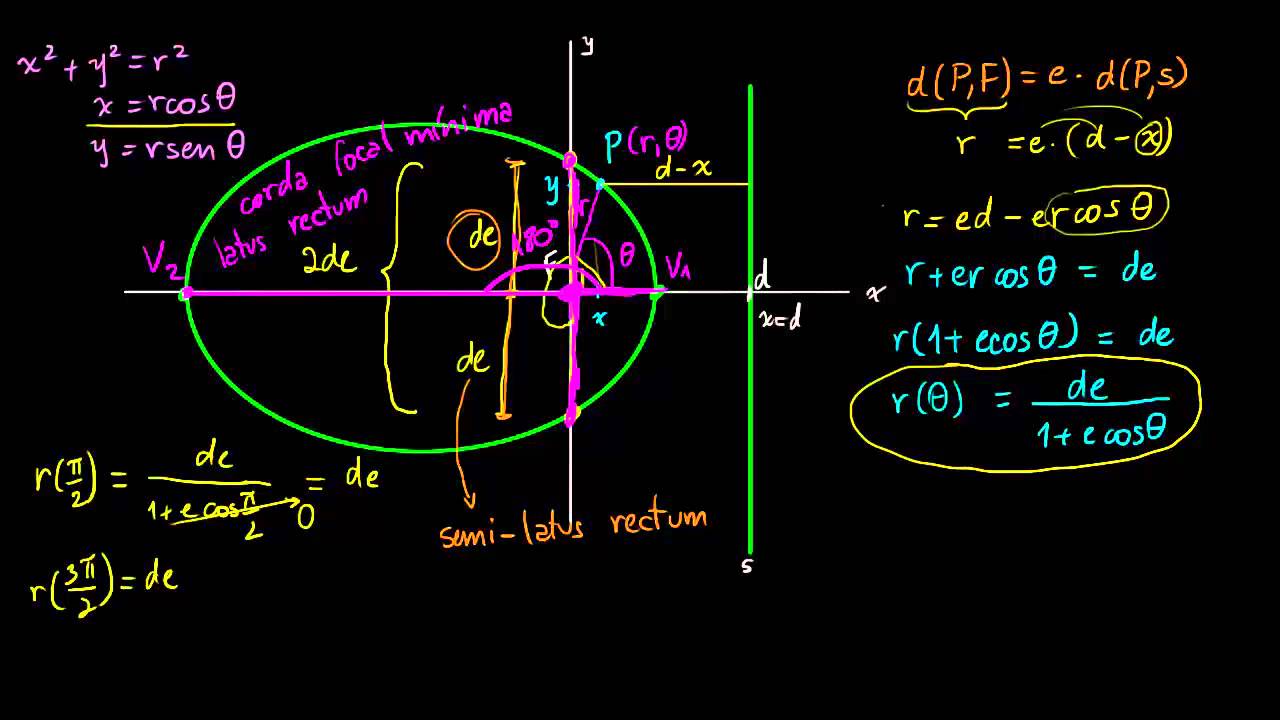 x² + y² = r²
x = rcosθ
y = rsen θ
y
corda focal mínima
latus rectum
P(r,θ)
d-x
y
r
de
180°
θ
F
2de
V₂
V₁
d
x
x
x=d
de
semi-latus rectum
s
d(P,F) = e · d(P,s)
r = e·(d-x)
r = ed - ercosθ
r + ercosθ = de
r(1+ ecosθ) = de
r(θ) = de / 1+ e cosθ
r(π/2) = de / 1+ e cos π/2 = de
0
r(3π/2) = de